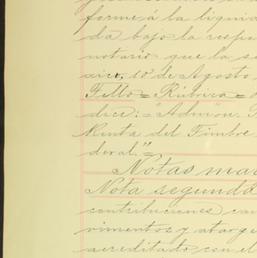 forme á la liquida
da bajo la respo
notario que la s
xico, 18 de Agosto
Tello = Rubira =
dice: = "Admon.
Renta del Timbre
deral." =
Notas mar
Nota segunda
contribuciones cau
vimientos y otorga
acreditado con el